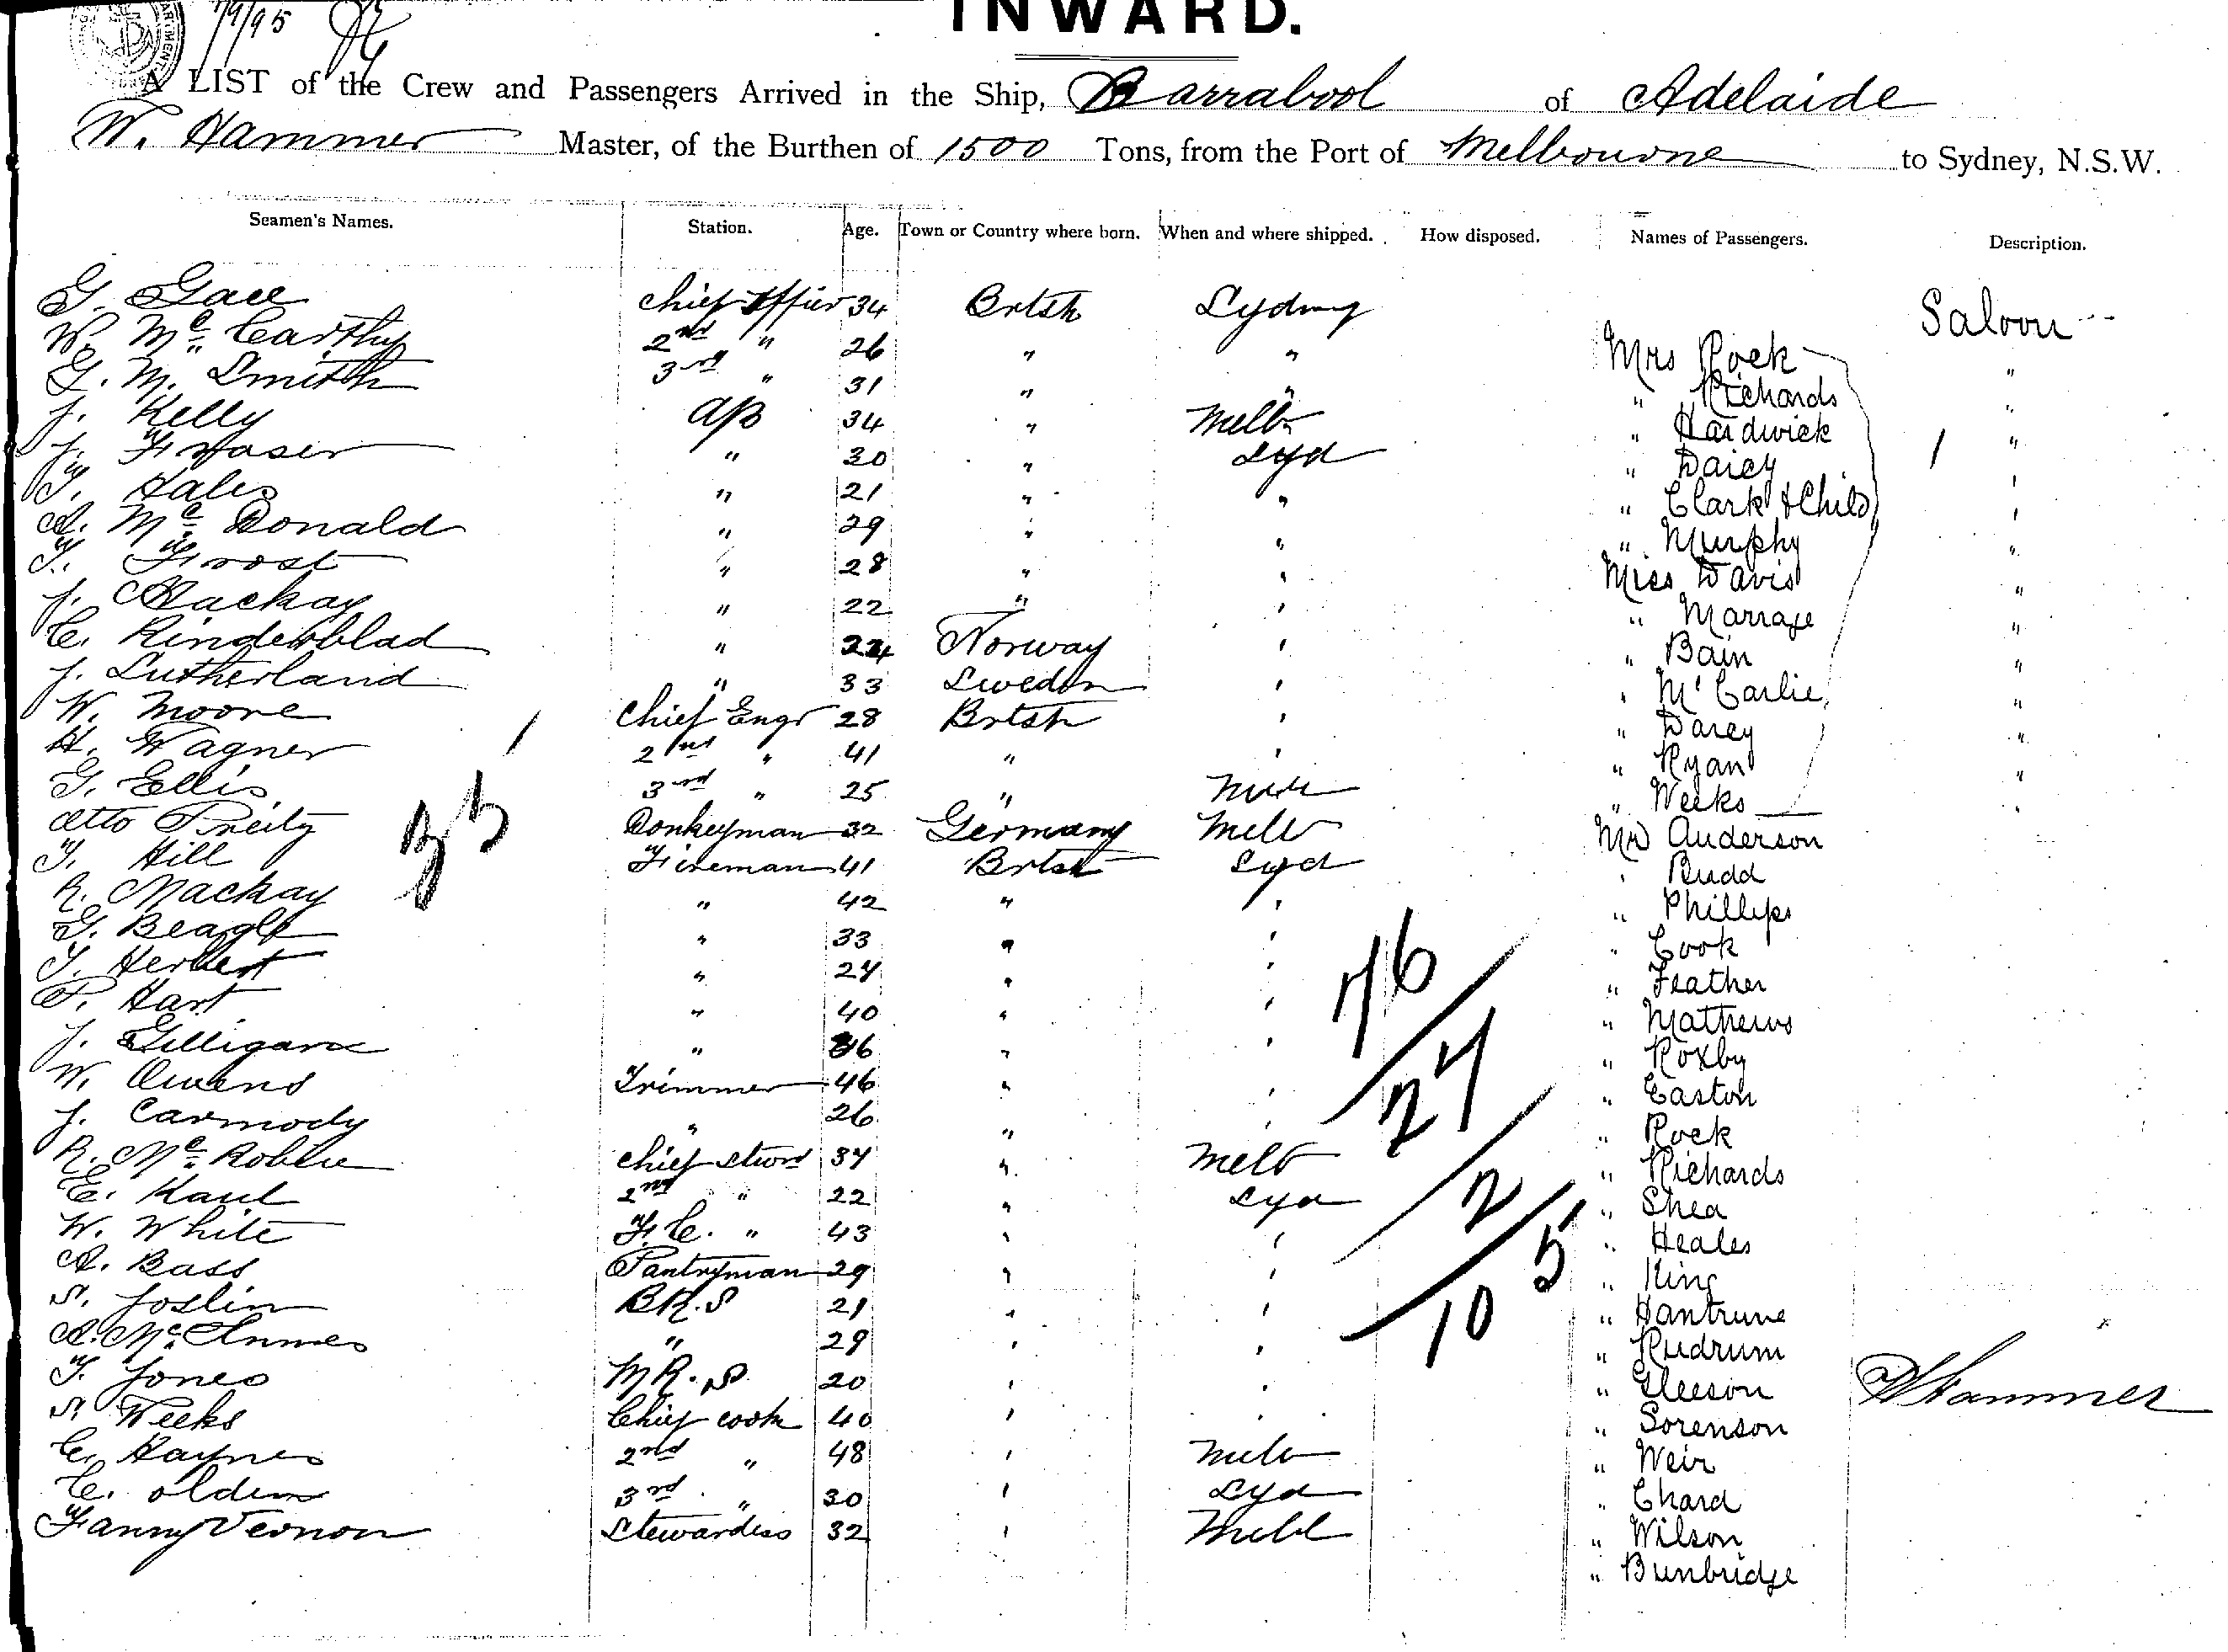 7/9/95
INWARD.
A LIST of the Crew and Passengers Arrived in the Ship, Barrabool of Adelaide
W. Hammer Master, of the Burthen of 1500 Tons, from the Port of Melbourne to Sydney, N.S.W.
Seamen's Names. Station. Age. Town or Country where born. When and where shipped. How disposed. Names of Passengers. Description.
G. Chief Officer 34 Brtsh Sydney
W. Mc Carthy 2nd " 26 " "
G. M. Smith 3rd " 31 " "
J. Kelly AB 34 " Melb
J. Fraser " 30 " Syd
T. Hales " 21 " "
A. Mc Donald " 29 " "
T. Frost " 28 " "
J. Mackay " 22 " "
C. Rinderblad " 24 Norway "
J. Sutherland " 33 Sweden "
W. Moore Chief Engr 28 Brtsh "
H. Wagner 2nd " 41 " "
G. Ellis 3rd " 25 "
Otto Donkeyman 32 Germany Melb
T. Hill Fireman 41 Brtsh Syd
R. Mackay " 42 " "
G. Beagle " 33 " "
T. Herbert " 27 " "
P. Hart " 40 " "
J. Gilligan " 46 " "
W. Owens Trimmer 46 " "
J. Carmody " 26 " "
R. Mc Robbie Chief Stwrd 37 " Melb
E. Kaul 2nd " 22 " Syd
W. White F.C. " 43 " "
A. Bass Pantryman 29 " "
S. Joslin BR.S 21 " "
A. Mc Innnes " 29 " "
T. Jones MR.S 20 " "
S. Weeks Chief cook 40 " "
C. Haynes 2nd " 48 " Melb
C. olden 3rd " 30 " Syd
Fanny Vernon Stewardess 32 " Melb
35
76
27
2
105
Saloon
Mrs Rock "
" Richards "
" Hardwick "
" Daicy "
" Clark & Child "
" Murphy "
Miss Davis "
" Marrage "
" Bain "
" McCarlie "
" Darcy "
" Ryan "
" Weeks "
Mr Anderson
" Rudd
" Phillips
" Cook
" Feather
" Mathews
" Roxby
" Easton
" Rock
" Richards
" Shea
" Heales
" King
" Hantrune
" Rudrum
" Gleeson
" Sorenson
" Weir
" Chard
" Wilson
" Bunbridge
W Hammer